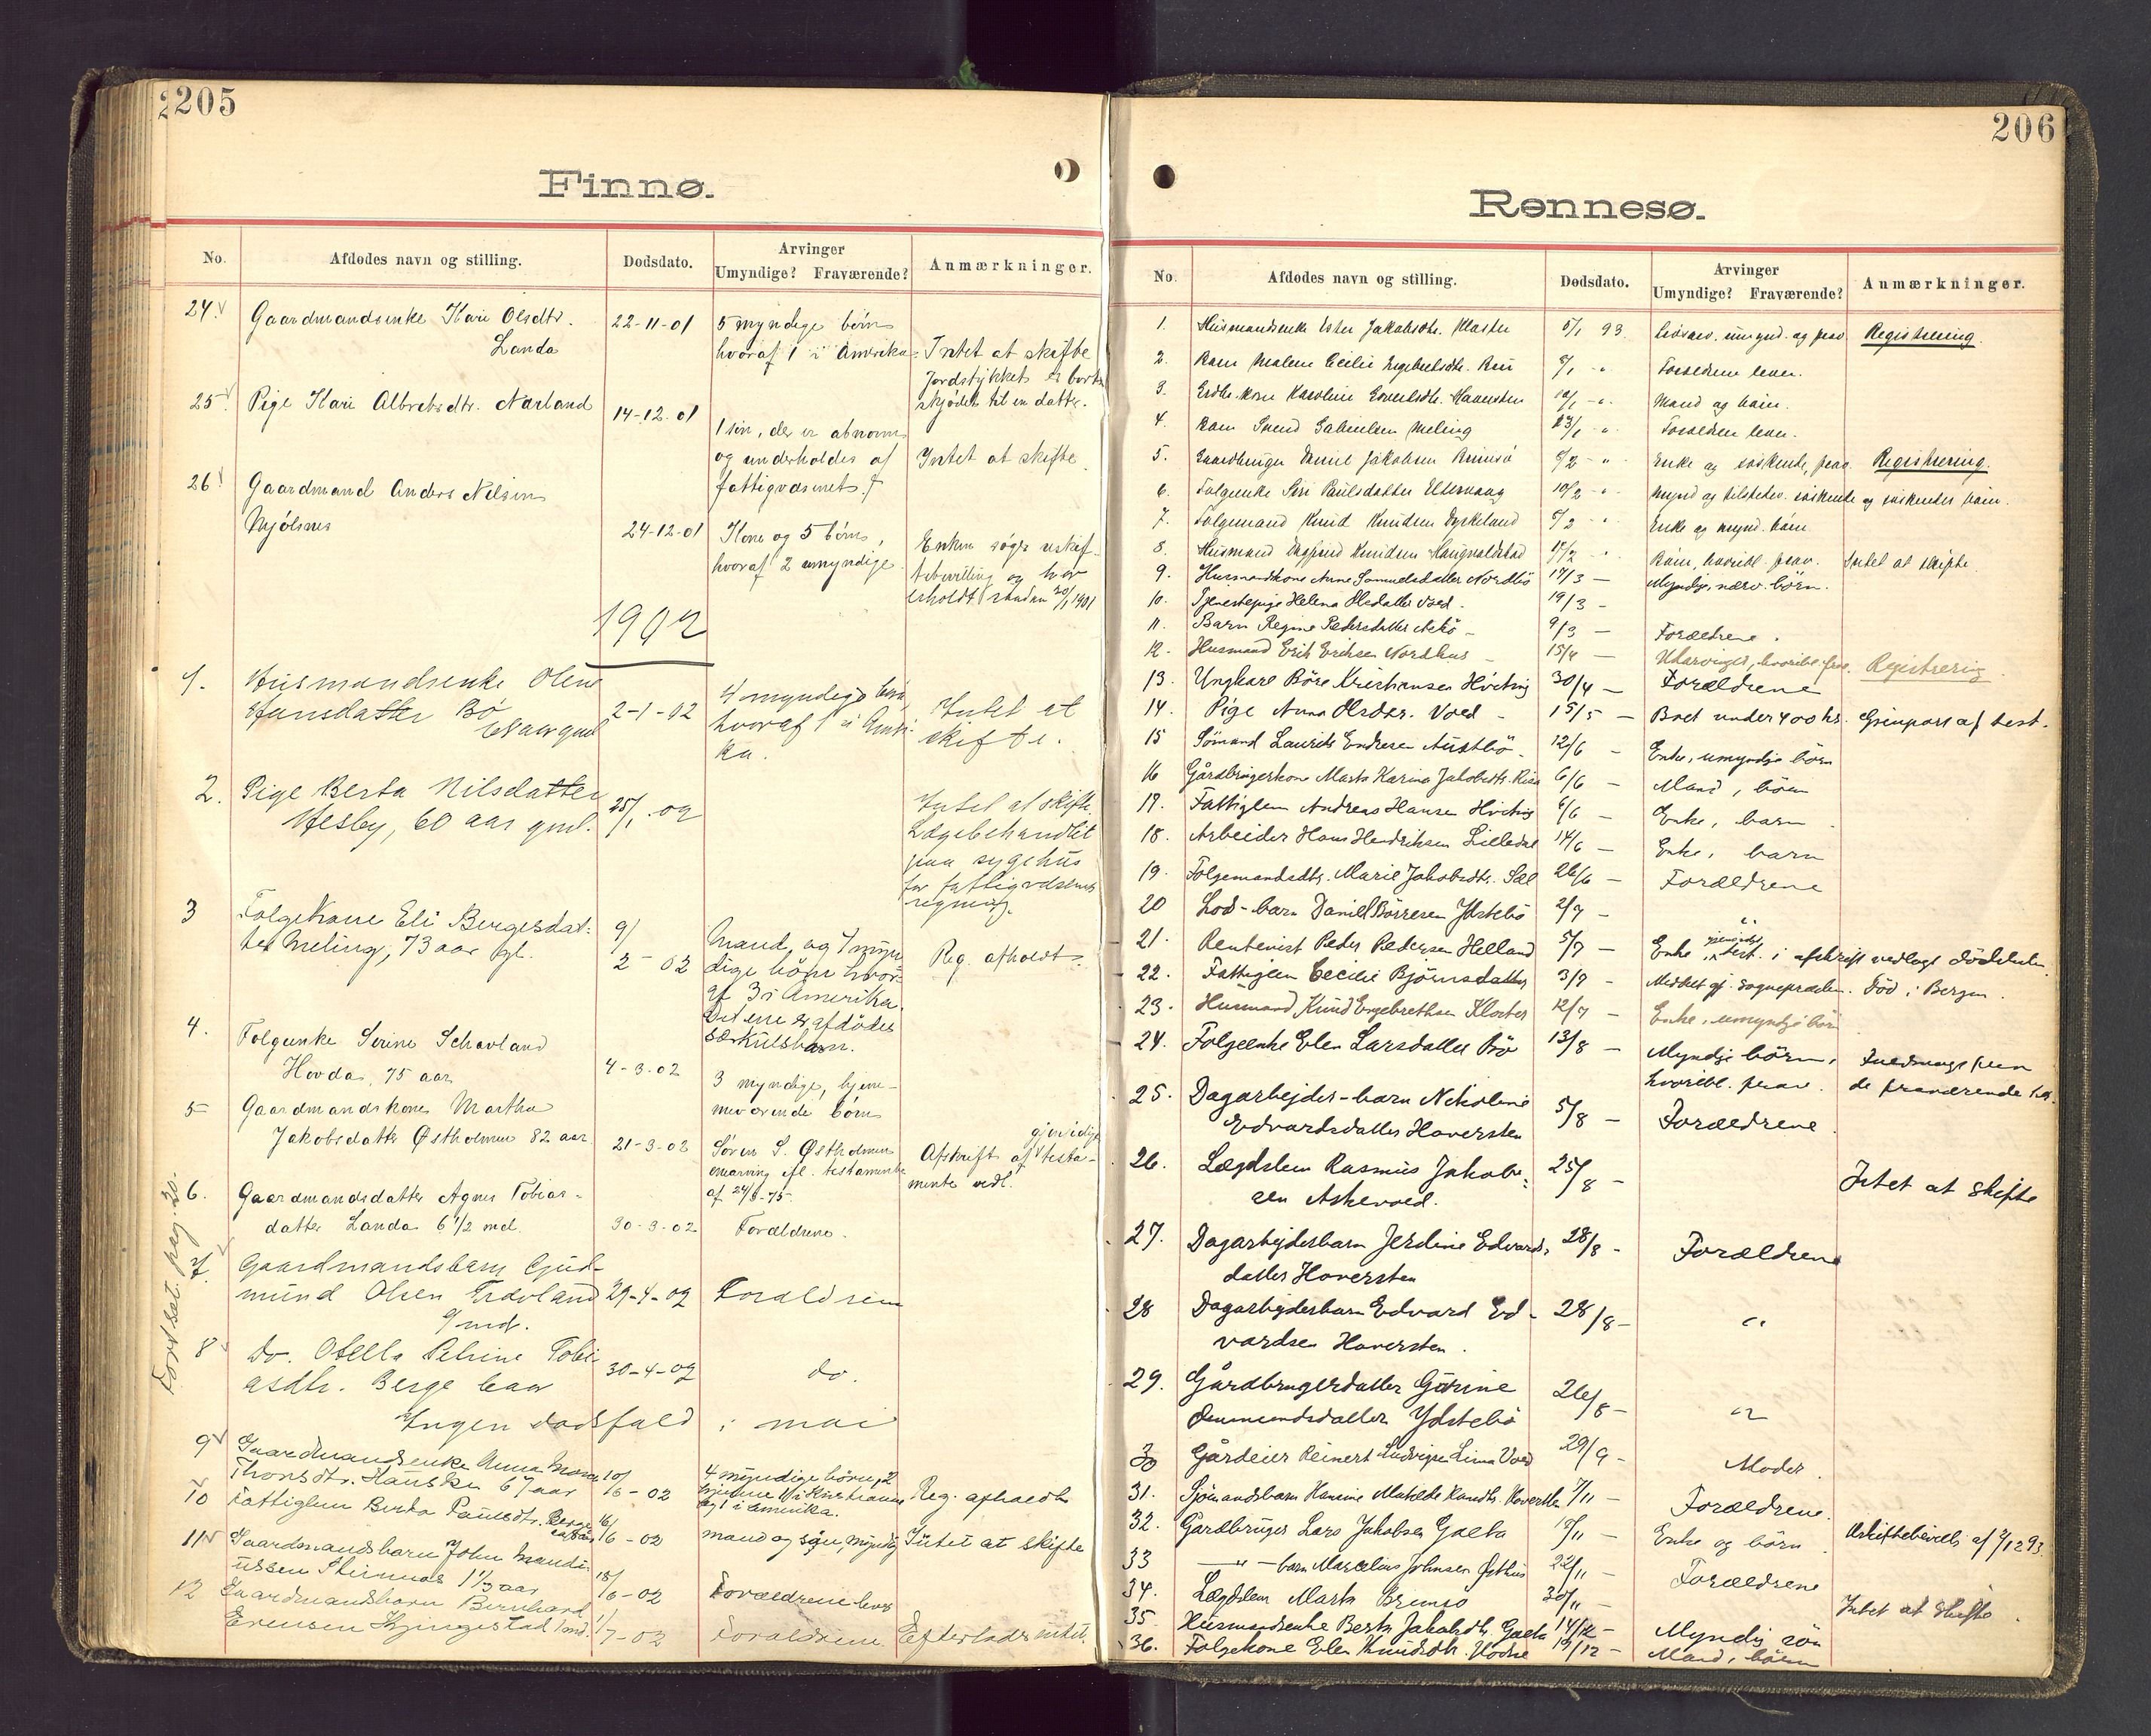 205
Finnø.
No.
Afdødes navn og stilling.
Dødsdato.
Arvinger
Umyndige? Fraværende?
Anmærkninger.
24. Gaardmandsenke Kari Olsdtr. 22-11-01 5 myndige børn
Landa hvoraf 1 i Amerika Intet at skifte
Jordstykket er bort-
skjødet til en datter.
25. Pige Kari Albretsdtr. Narland 14-12-01
1 søn, der er abnorm
og underholdes af Intet at skifte
fattigvæsenet.
26 Gaardmand Anders Nilsen
Mjølsnes 24-12-01 Kone og 5 børn,
hvoraf 2 umyndige
Enken søger uskif-
tebevilling og har
erholdt
1902
1. Husmandsenke Olene
Hansdatter Bø 2-1-02 4 myndige børn
hvoraf 1 i Ameri-
ka. Intet at
skifte.
2. Pige Berta Nilsdatter
Hesby, 60 aar gml. 25/1-02
Intet at skifte
Lægebehandlet
paa sygehus
for fattigvæsenets
regning.
3 Folgekone Eli Bergesdat-
ter Meling, 73 aar gl. 9/2-02
Mand og 7 myn
dige børn hvor-
af 3 i Amerika.
Det ene er afdødes
særkulsbarn.
Reg. afholdt.
4. Folgeenke Serine Schavland
Hovda, 75 aar 4-3-02
3 myndige, hjem-
meværende børn
5 Gaardmandskone Martha
Jakobsdatter Østholmen 82 aar. 21-3-02
Søren S. Østholmen
enearving efl. testamente
af 24/8-75-
gjensidige
Afskrift af testa-
mente vedl.
6. Gaardmandsdatter Agnes Tobias-
datter Landa 6 1/2 md. 30-3-02 Forældrene.
7. Gaardmandsbarn Gud-
mund Olsen 29-4-02 Forældrene
8 Do. Otella Petrine Tobi
asdtr. Berge 30-4-02 do.
Ingen dødsfald i mai
9 Gaardmandsenke Anna
Thorsdtr. Hauske 67 aar 10/6-02
4 myndige børn, 2
hjemme 1 i Kristiania
og 1 i Amerika.
Reg. afholdt
10 Fattiglem Berta Paulsdtr. Berge 16/6-02 mand og søn, myndig Intet at skifte
11 Gaardmandsbarn John
1 1/3 aar 18/6-02 Forældrene lever
12 Gaardmandsbarn Bernhard
Evensen 1/7-02 Forældrene Efterlader intet.
Fortsat. pag. 20.
206
Rennesø.
No.
Afdødes navn og stilling.
Dødsdato.
Arvinger
Umyndige? Fraværende?
Anmærkninger.
1. Husmandsenke Ester Jakobsdtr. Kloster 5/1 93. Livsarv. umynd. og frav. Registrering.
2. Barn Malene Cecilie Engebretsdtr. 5/1 " Forældrene lever.
3. Karoline 10/1 " Mand og børn.
4. Barn Svend Gabrielsen Meling 23/1 " Forældrene lever.
5. Gaardbruger Daniel Jakobsen 5/2 " Enke og søskende, frav. Registrering.
6. Folgeenke Siri Paulsdatter Eltervaag 10/2 " Mynd og tilstedev. søskende og søskendes børn.
7. Folgemand Knud Knudsen Dyskeland 5/2 " Enke og mynd. børn.
8. Husmand Knudsen 15/2 " Børn, hvoribl. frav. Intet at skifte.
9. Husmandskone Anne Samuelsdatter Nordbø 17/3 — Myndige, nærv. børn.
10. Tjenestepige Helena Olsdatter Voed. 19/3 —
11. Barn Regine Pedersdatter Askø — 9/3 — Forældrene.
12. Husmand Erik Eriksen Nordhus — 15/4 — Udarvinger, hvoribl. frav. Registrering.
13. Ungkarl Børe Kristiansen Hviding 30/4 — Forældrene
14. Pige Anna Olsdtr. Voed — 15/5 — Boet under 400 kr. Gjenpart af test.
15 Sømand Laurits Endresen Austbø. 12/6 — Enke, umyndige børn
16 Gårdbrugerkone Marta Karina Jakobsdtr. Risa 6/6 — Mand, børn
17. Fattiglem Andreas Hansen Hviding 6/6 — Enke, barn
18. Arbeider Hans Hendriksen Lilledal 14/6 — Enke, barn
19. Folgemandsdtr. Marie Jakobsdtr. Sæl 26/6 — Forældrene
20 Lods-barn Daniel Børresen Ydstebø 2/7 — "
21. Rentenist Peder Pedersen Helland 5/7 — Enke, gjensidigt test. i afskrift vedlagt dødslisten
22. Fattiglem Cecilie Bjørnsdatter 3/7 — Meddelt af sognepræsten. Død i Bergen.
23. Husmand Knud Engebrethsen Kloster 12/7 — Enke, umyndige børn
24. Folgeenke Elen Larsdatter Bø 13/8 — Myndige børn,
hvoribl. frav. Fuldmagt fra
de fraværende
25. Dagarbejder-barn Nikoline
Edvardsdatter Haversten 5/8 — Forældrene.
26. Lægdslem Rasmus Jakob-
sen Askevoed. 25/8 — Intet at skifte
27. Dagarbejderbarn Jerdine Edvards-
datter Haversten 28/8 — Forældrene
28 Dagarbejderbarn Edvard Ed-
vardsen Haversten. 28/8 — "
29. Gårdbrugerdatter Gurine
Ydstebø 26/8 — "
30 Gårdeier Reinert Ludvigsen Lima Voed 29/9 — Moder.
31. Sjømandsbarn Hansine Matilde 7/11 — Forældrene.
32. Gardbruger Lars Jakobsen Gaeta 18/11 — Enke og børn. Uskiftebevill. af 7/12 93.
33 — " — barn Marcelius Johnsen Østhus 22/11 — Forældrene
34. Lægdslem Marta Bremso 30/11 — Intet at skifte.
35. Husmandsenke Berta Jakobsdtr. Gaeta 14/12 — Myndig søn
36. Folgekone Elen Knudsdtr. 19/12 — Mand, børn